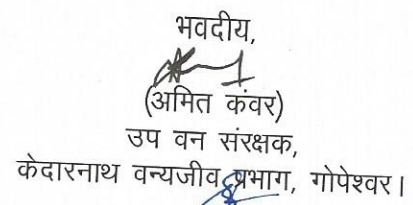 भवदीय,
(अमित कंवर)
उप वन संरक्षक,
केदारनाथ वन्यजीव प्रभाग, गोपेश्वर।